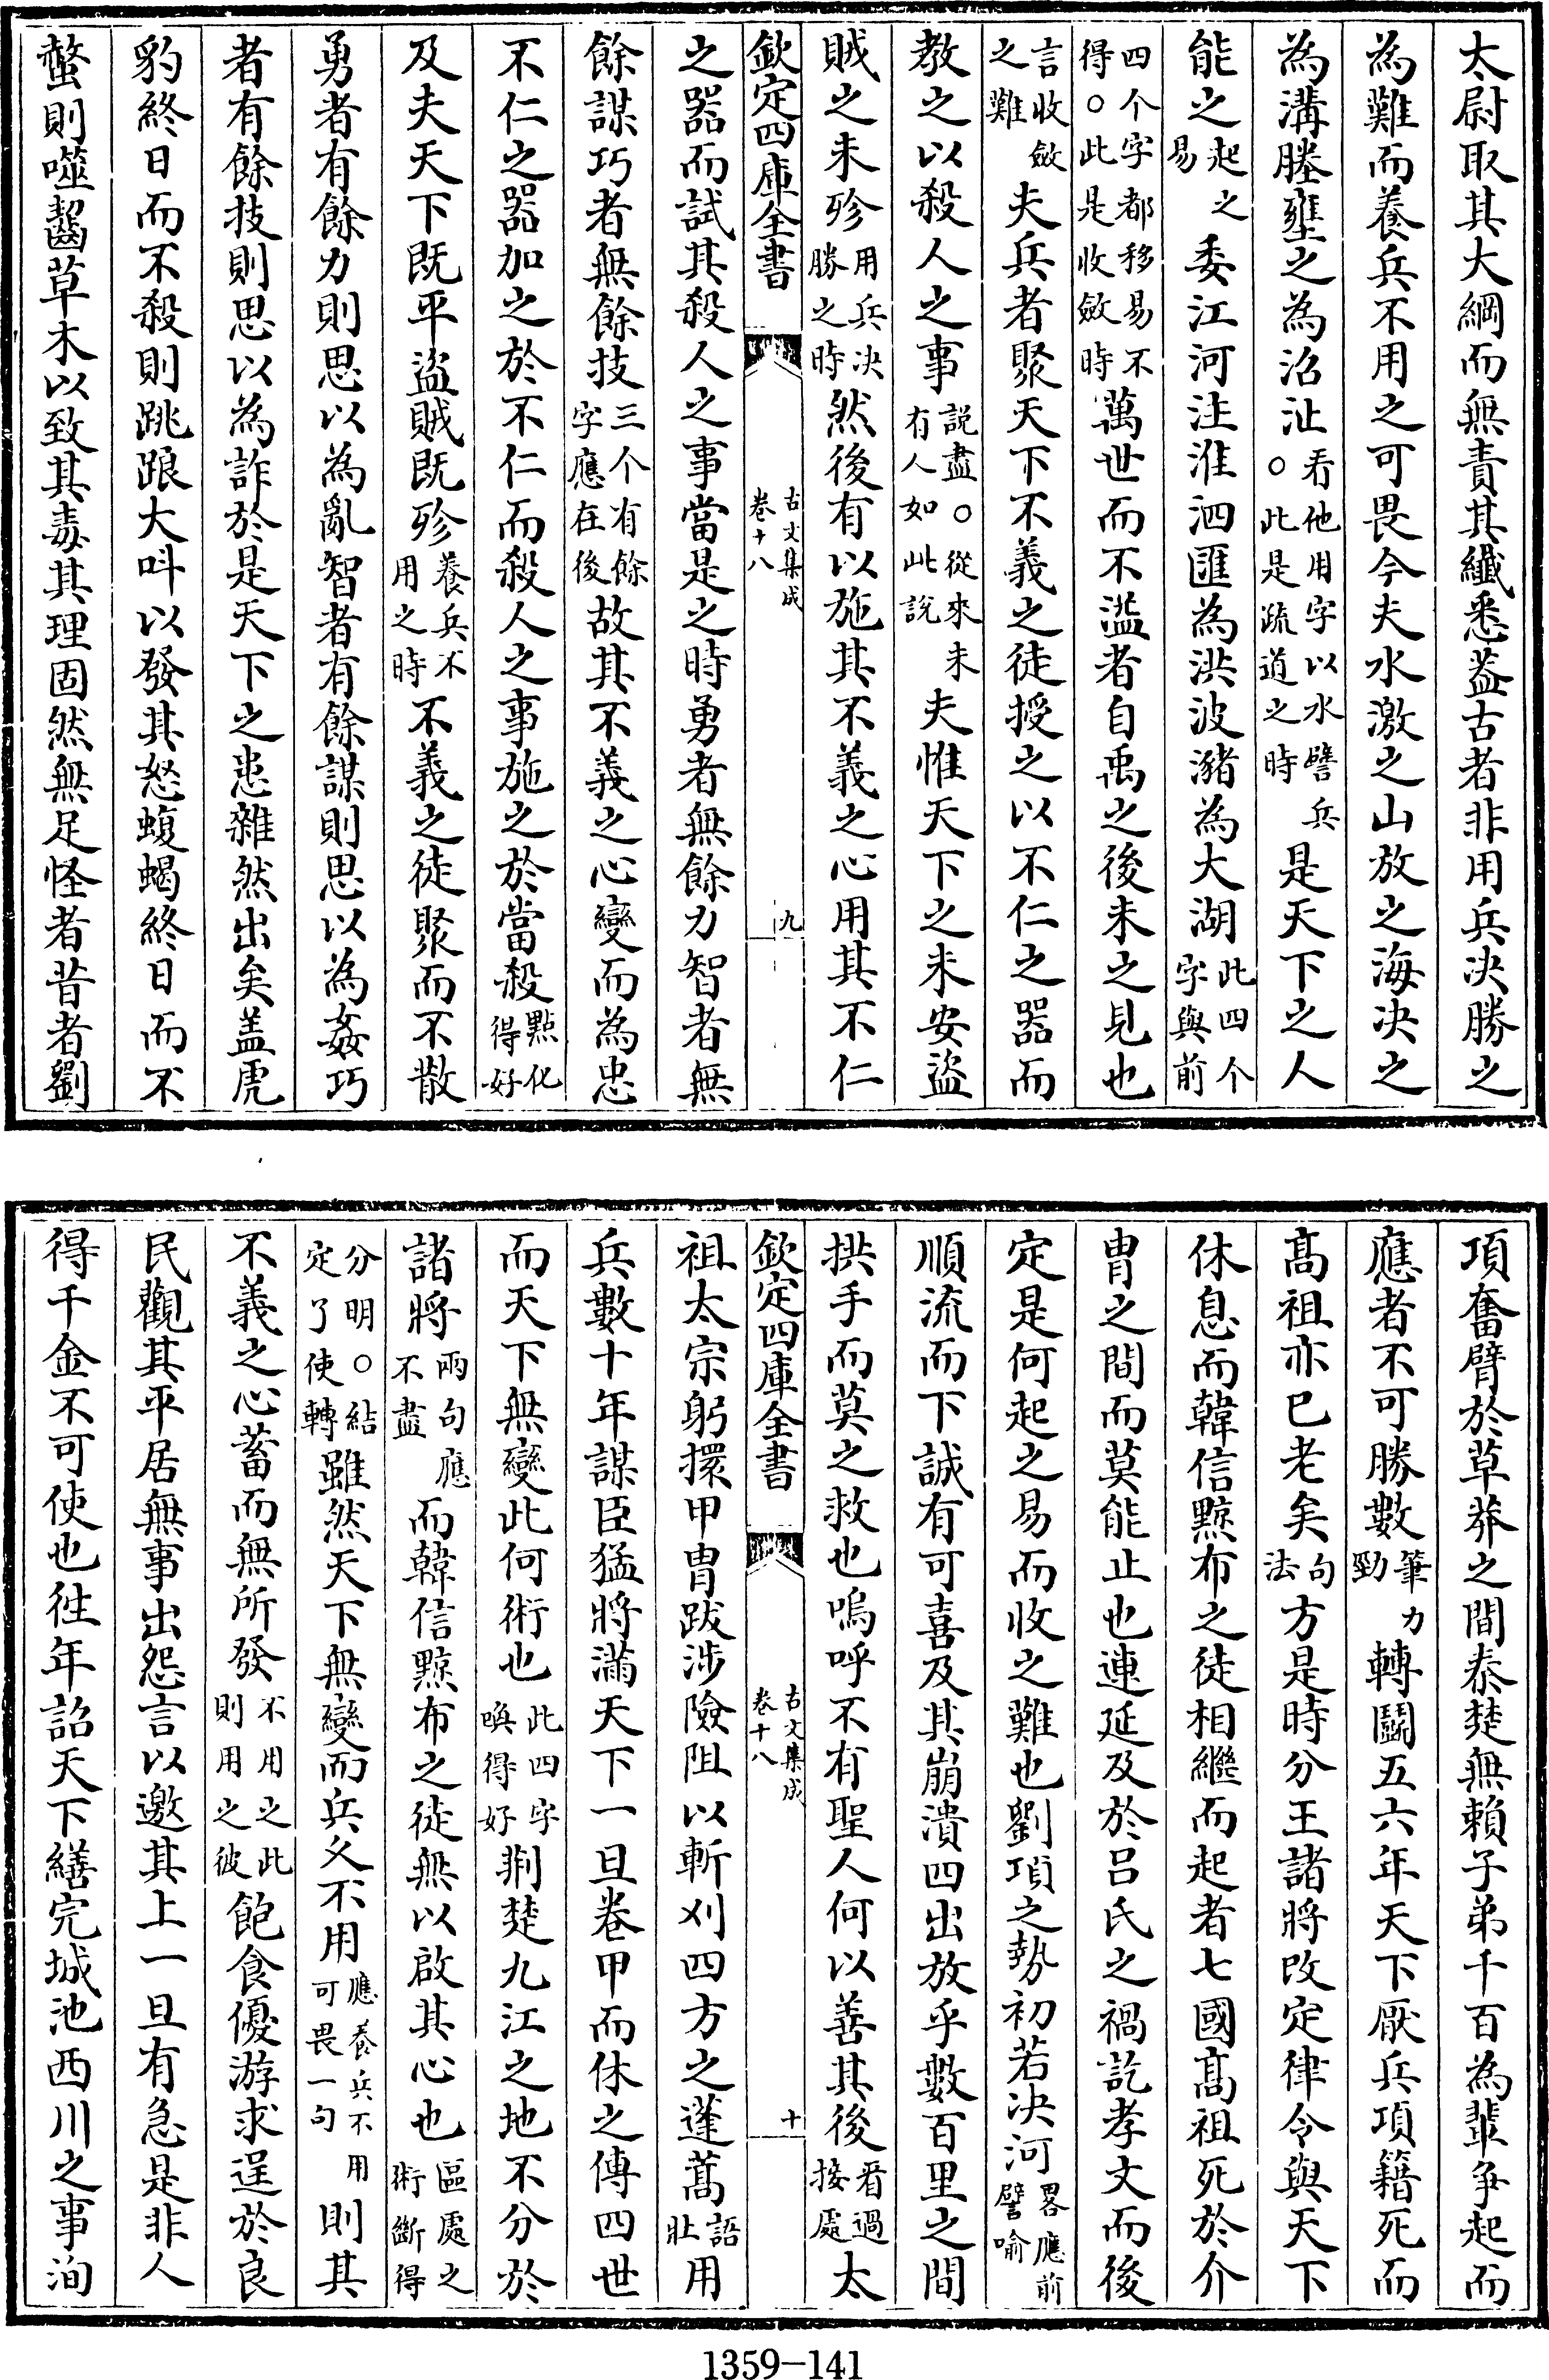 太尉取其大綱而無責其纖悉葢古者非用兵決勝之
為難而養兵不用之可畏今夫水激之山放之海決之
為溝塍壅之為沼沚看他用字以水譬兵○此是疏道之時是天下之人
能之起之易委江河注淮泗匯為洪波瀦為大湖此四个字與前
四个字都移易不得○此是收斂時萬世而不溢者自禹之後未之見也
言收斂之難夫兵者聚天下不義之徒授之以不仁之器而
教之以殺人之事説盡○從來未有人如此說夫惟天下之未安盜
賊之未殄用兵決勝之時然後有以施其不義之心用其不仁
欽定四庫全書
古文集成
卷十八
九
之器而試其殺人之事當是之時勇者無餘力智者無
餘謀巧者無餘技三个有餘字應在後故其不義之心變而為忠
不仁之器加之於不仁而殺人之事施之於當殺點化得好
及夫天下既平盜賊既殄養兵不用之時不義之徒聚而不散
勇者有餘力則思以為亂智者有餘謀則思以為姦巧
者有餘技則思以為詐於是天下之患雜然出矣盖虎
豹終日而不殺則跳踉大呌以發其怒蝮蝎終日而不
螫則噬齧草木以致其毒其理固然無足怪者昔者劉
項奮臂於草莽之間秦楚無賴子弟千百為輩爭起而
應者不可勝數筆力勁轉鬬五六年天下厭兵項籍死而
髙祖亦已老矣句法方是時分王諸將改定律令與天下
休息而韓信黥布之徒相繼而起者七國髙祖死於介
胄之間而莫能止也連延及於吕氏之禍訖孝文而後
定是何起之易而收之難也劉項之勢初若決河畧應前譬喻
順流而下誠有可喜及其崩潰四出放乎數百里之間
拱手而莫之救也嗚呼不有聖人何以善其後看過接處太
欽定四庫全書
古文集成
卷十八
十
祖太宗躬擐甲胄跋涉險阻以斬刈四方之蓬蒿語壯用
兵數十年謀臣猛將滿天下一旦卷甲而休之傳四世
而天下無變此何術也此四字喚得好荆楚九江之地不分於
諸將兩句應不盡而韓信黥布之徒無以啟其心也區處之術斷得
分明○結定了使轉雖然天下無變而兵乆不用應養兵不用可畏一句則其
不義之心蓄而無所發不用之此則用之彼飽食優游求逞於良
民觀其平居無事出怨言以邀其上一旦有急是非人
得千金不可使也徃年詔天下繕完城池西川之事洵
1359-141